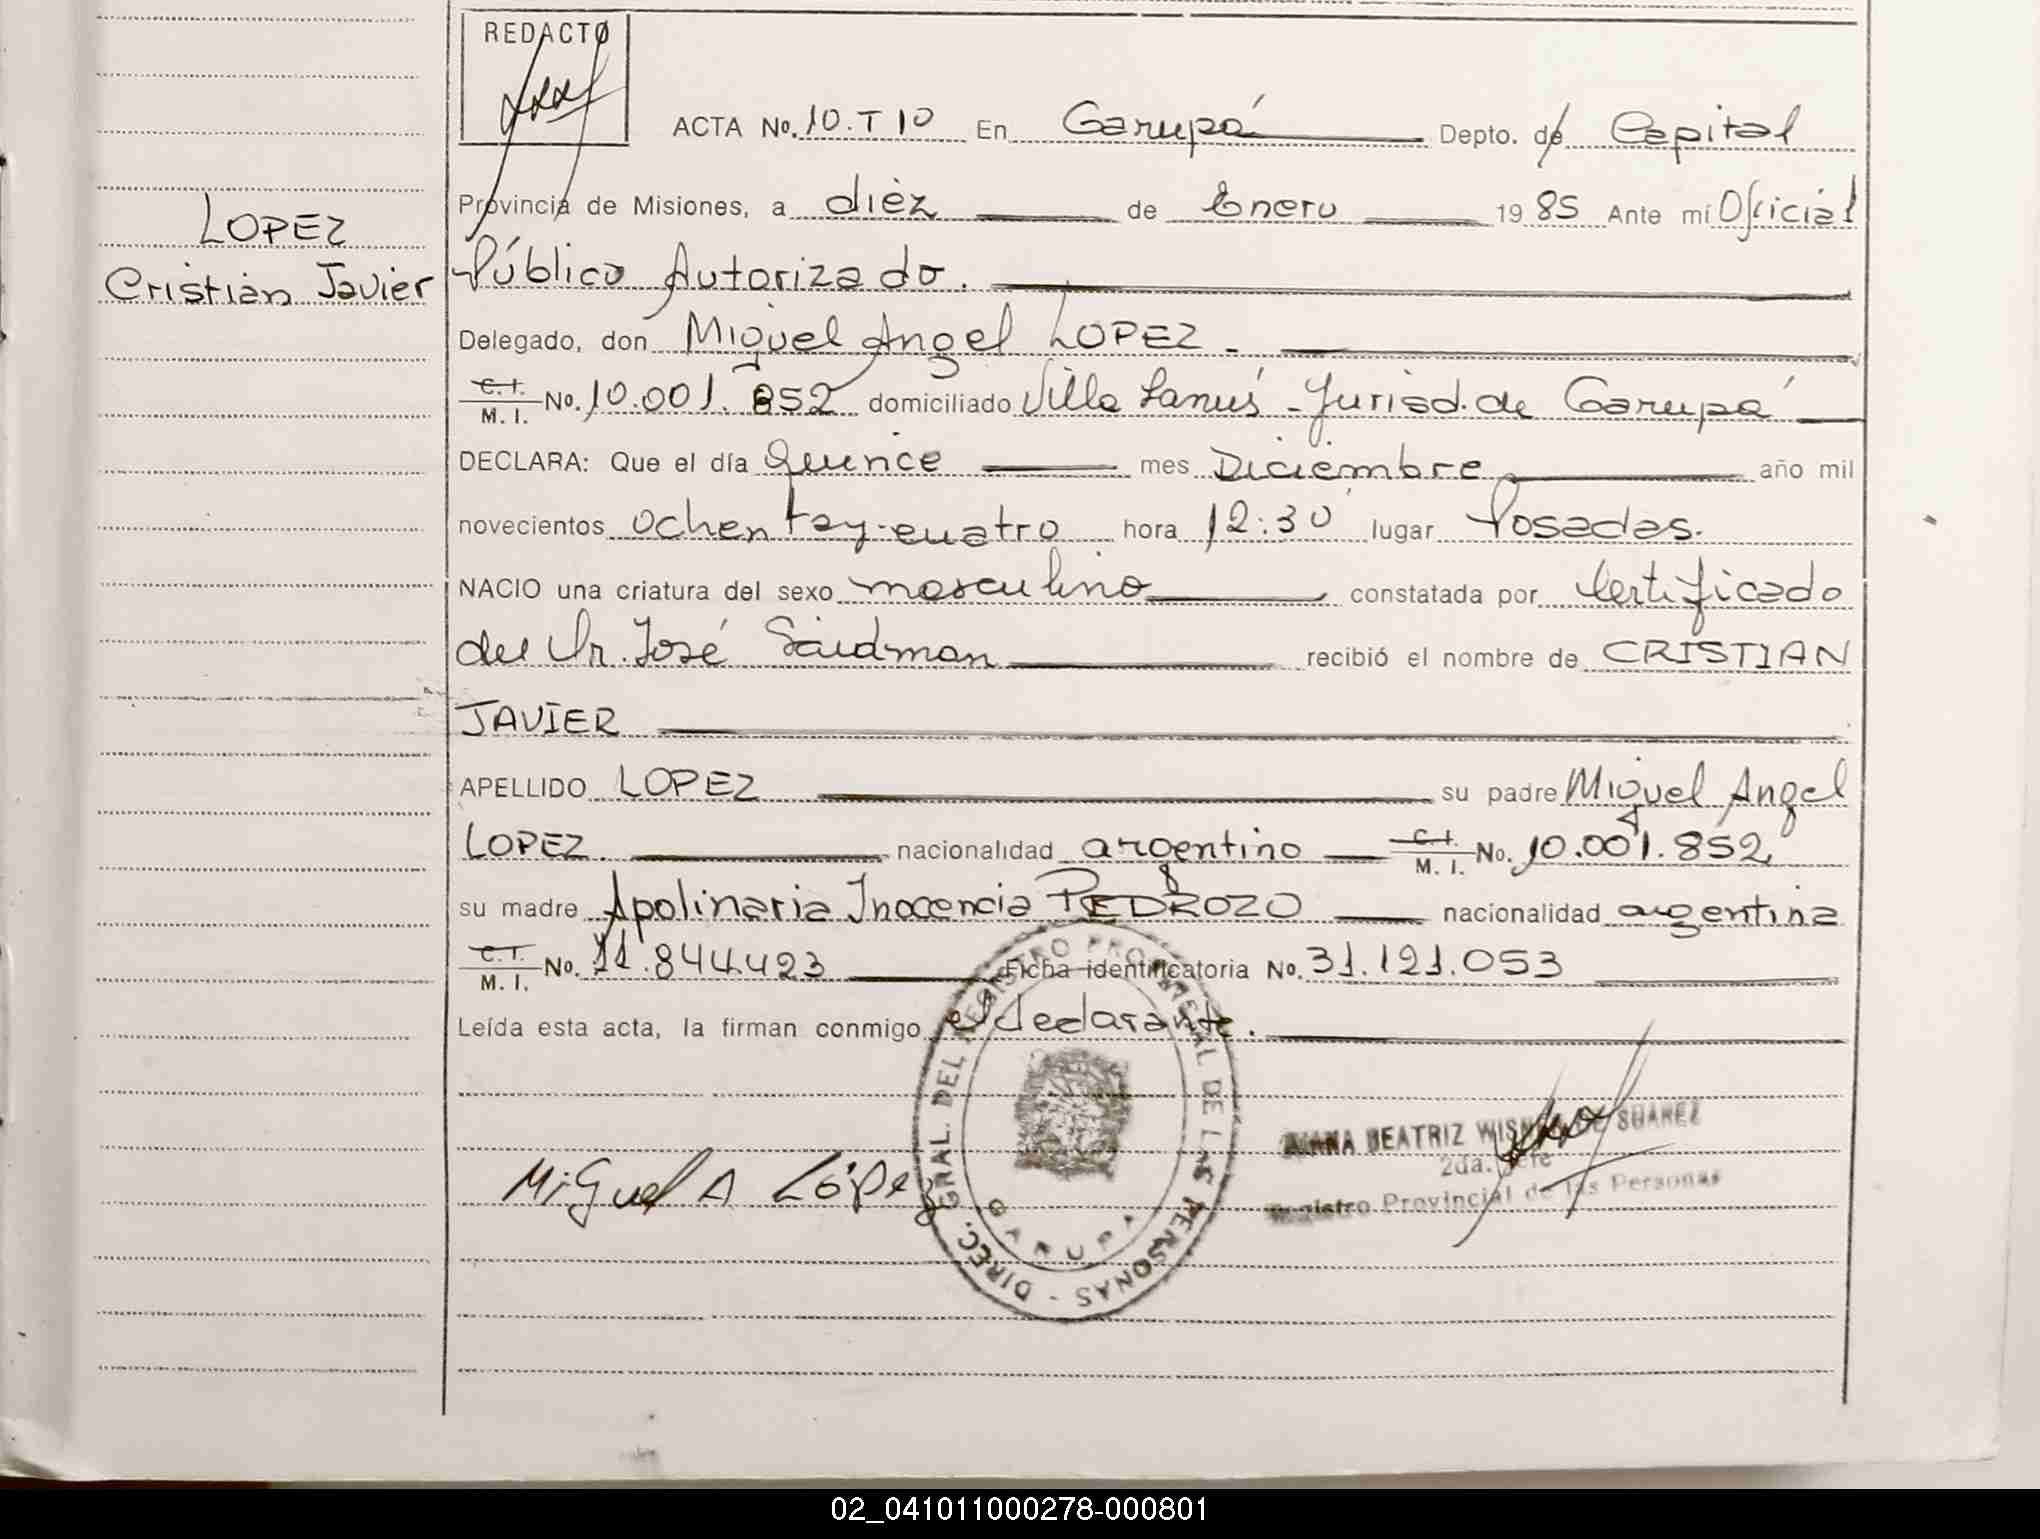 REDACTO
ACTA No. 10.T 10 En Garupá Depto. de Capital
LOPEZ
Cristian Javier
Provincia de Misiones, a diez de Enero 1985 Ante mí Oficial
Público Autorizado.
Delegado, don Miguel Angel LOPEZ.
C.I. M. I. No. 10.001.852 domiciliado Villa Lanús - Jurisd. de Garupá
DECLARA: Que el día Quince mes Diciembre año mil
novecientos ochentay cuatro hora 12:30 lugar Posadas.
NACIO una criatura del sexo masculino constatada por Certificado
del Dr. José Saidman recibió el nombre de CRISTIAN
JAVIER
APELLIDO LOPEZ su padre Miguel Angel
LOPEZ. nacionalidad argentino C.I. M. I. No. 10.001.852
su madre Apolinaria Inocencia PEDROZO nacionalidad argentina
C.I. M. I. No. 11.844.423 Ficha identificatoria No. 31.121.053
Leída esta acta, la firman conmigo el declarante.
DIREC. GRAL. DEL REGISTRO PROVINCIAL DE LAS PERSONAS -
GARUPA
Miguel A López
BEATRIZ DE SUAREZ
2da. Jefe
Registro Provincial de las Personas
02_041011000278-000801